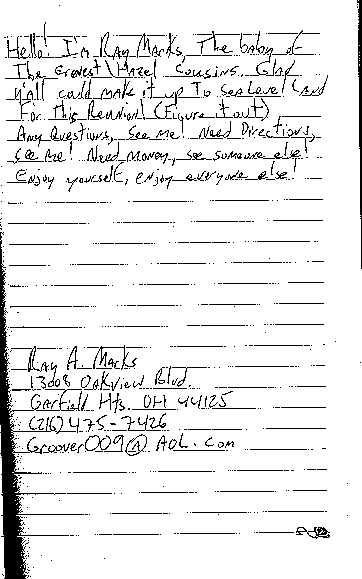 Hello! I'm Ray Marks, The baby of
The Ernest \ Hazel Cousins. Glad
y'all could make it up To Sea Level Land
For This Reunion! (Figure it out)
Any Questions, See me! Need Directions,
See me! Need Money, see someone else!
Enjoy yourself, enjoy everyone else!
Ray A. Marks
13008 Oakview Blvd.
Garfield Hts. OH 44125
(216) 475-7426
Groover009@AOL.com